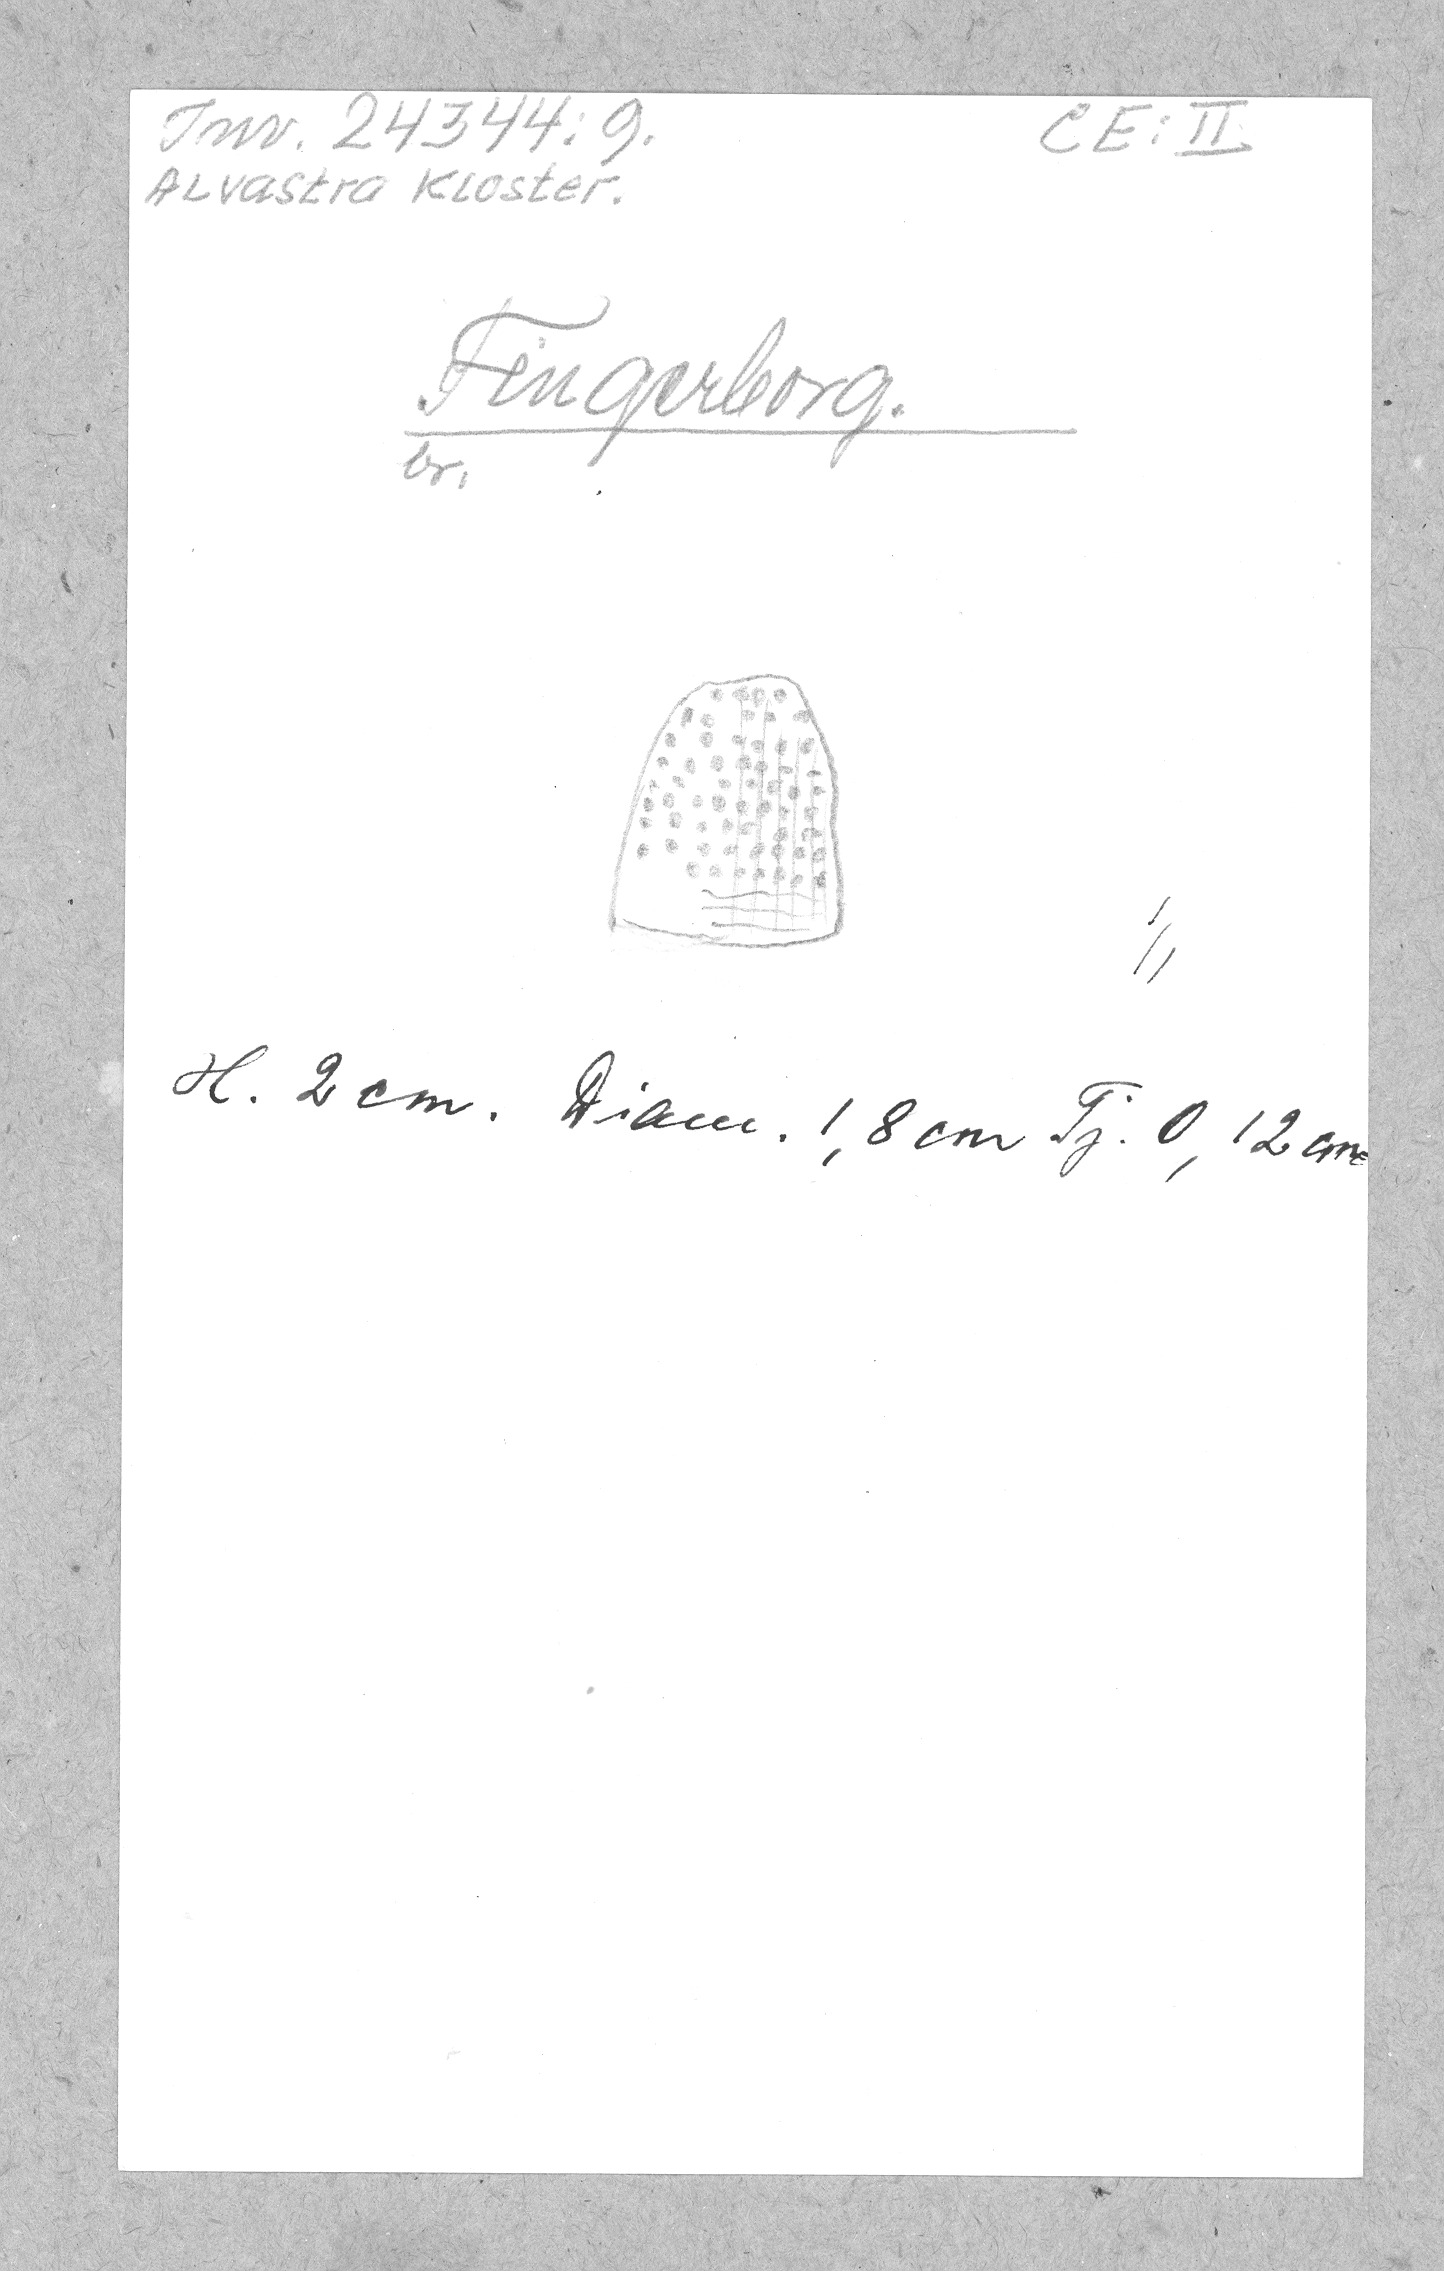 Inv. 24344:9. CE: II.
Alvastra Kloster.
Fingerborg.
br.
1/1
H. 2 cm. Diam. 1,8 cm Tj. 0,12 cm